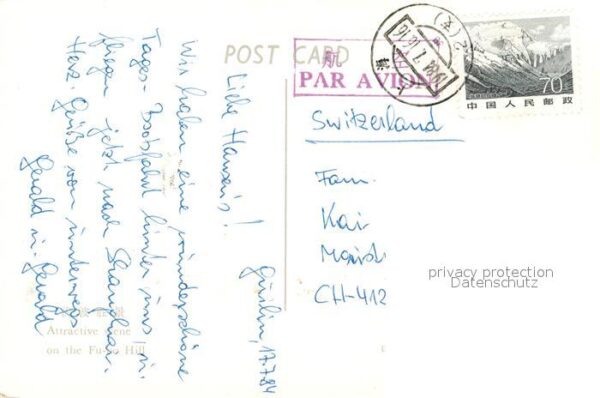 POST CARD
航空
PAR AVION
70
中国人民邮政
Switzerland
Fam.
Kai
CH-412
privacy protection
Datenschutz
Guilin, 17.7.84
Liebe Hansens!
Wir haben eine wunderschöne
Tages-Bootsfahrt hinter uns u.
fliegen jetzt nach Shanghai.
Herz. Grüße von unterwegs
Gerald u. Gerald
Attractive
on the Hill